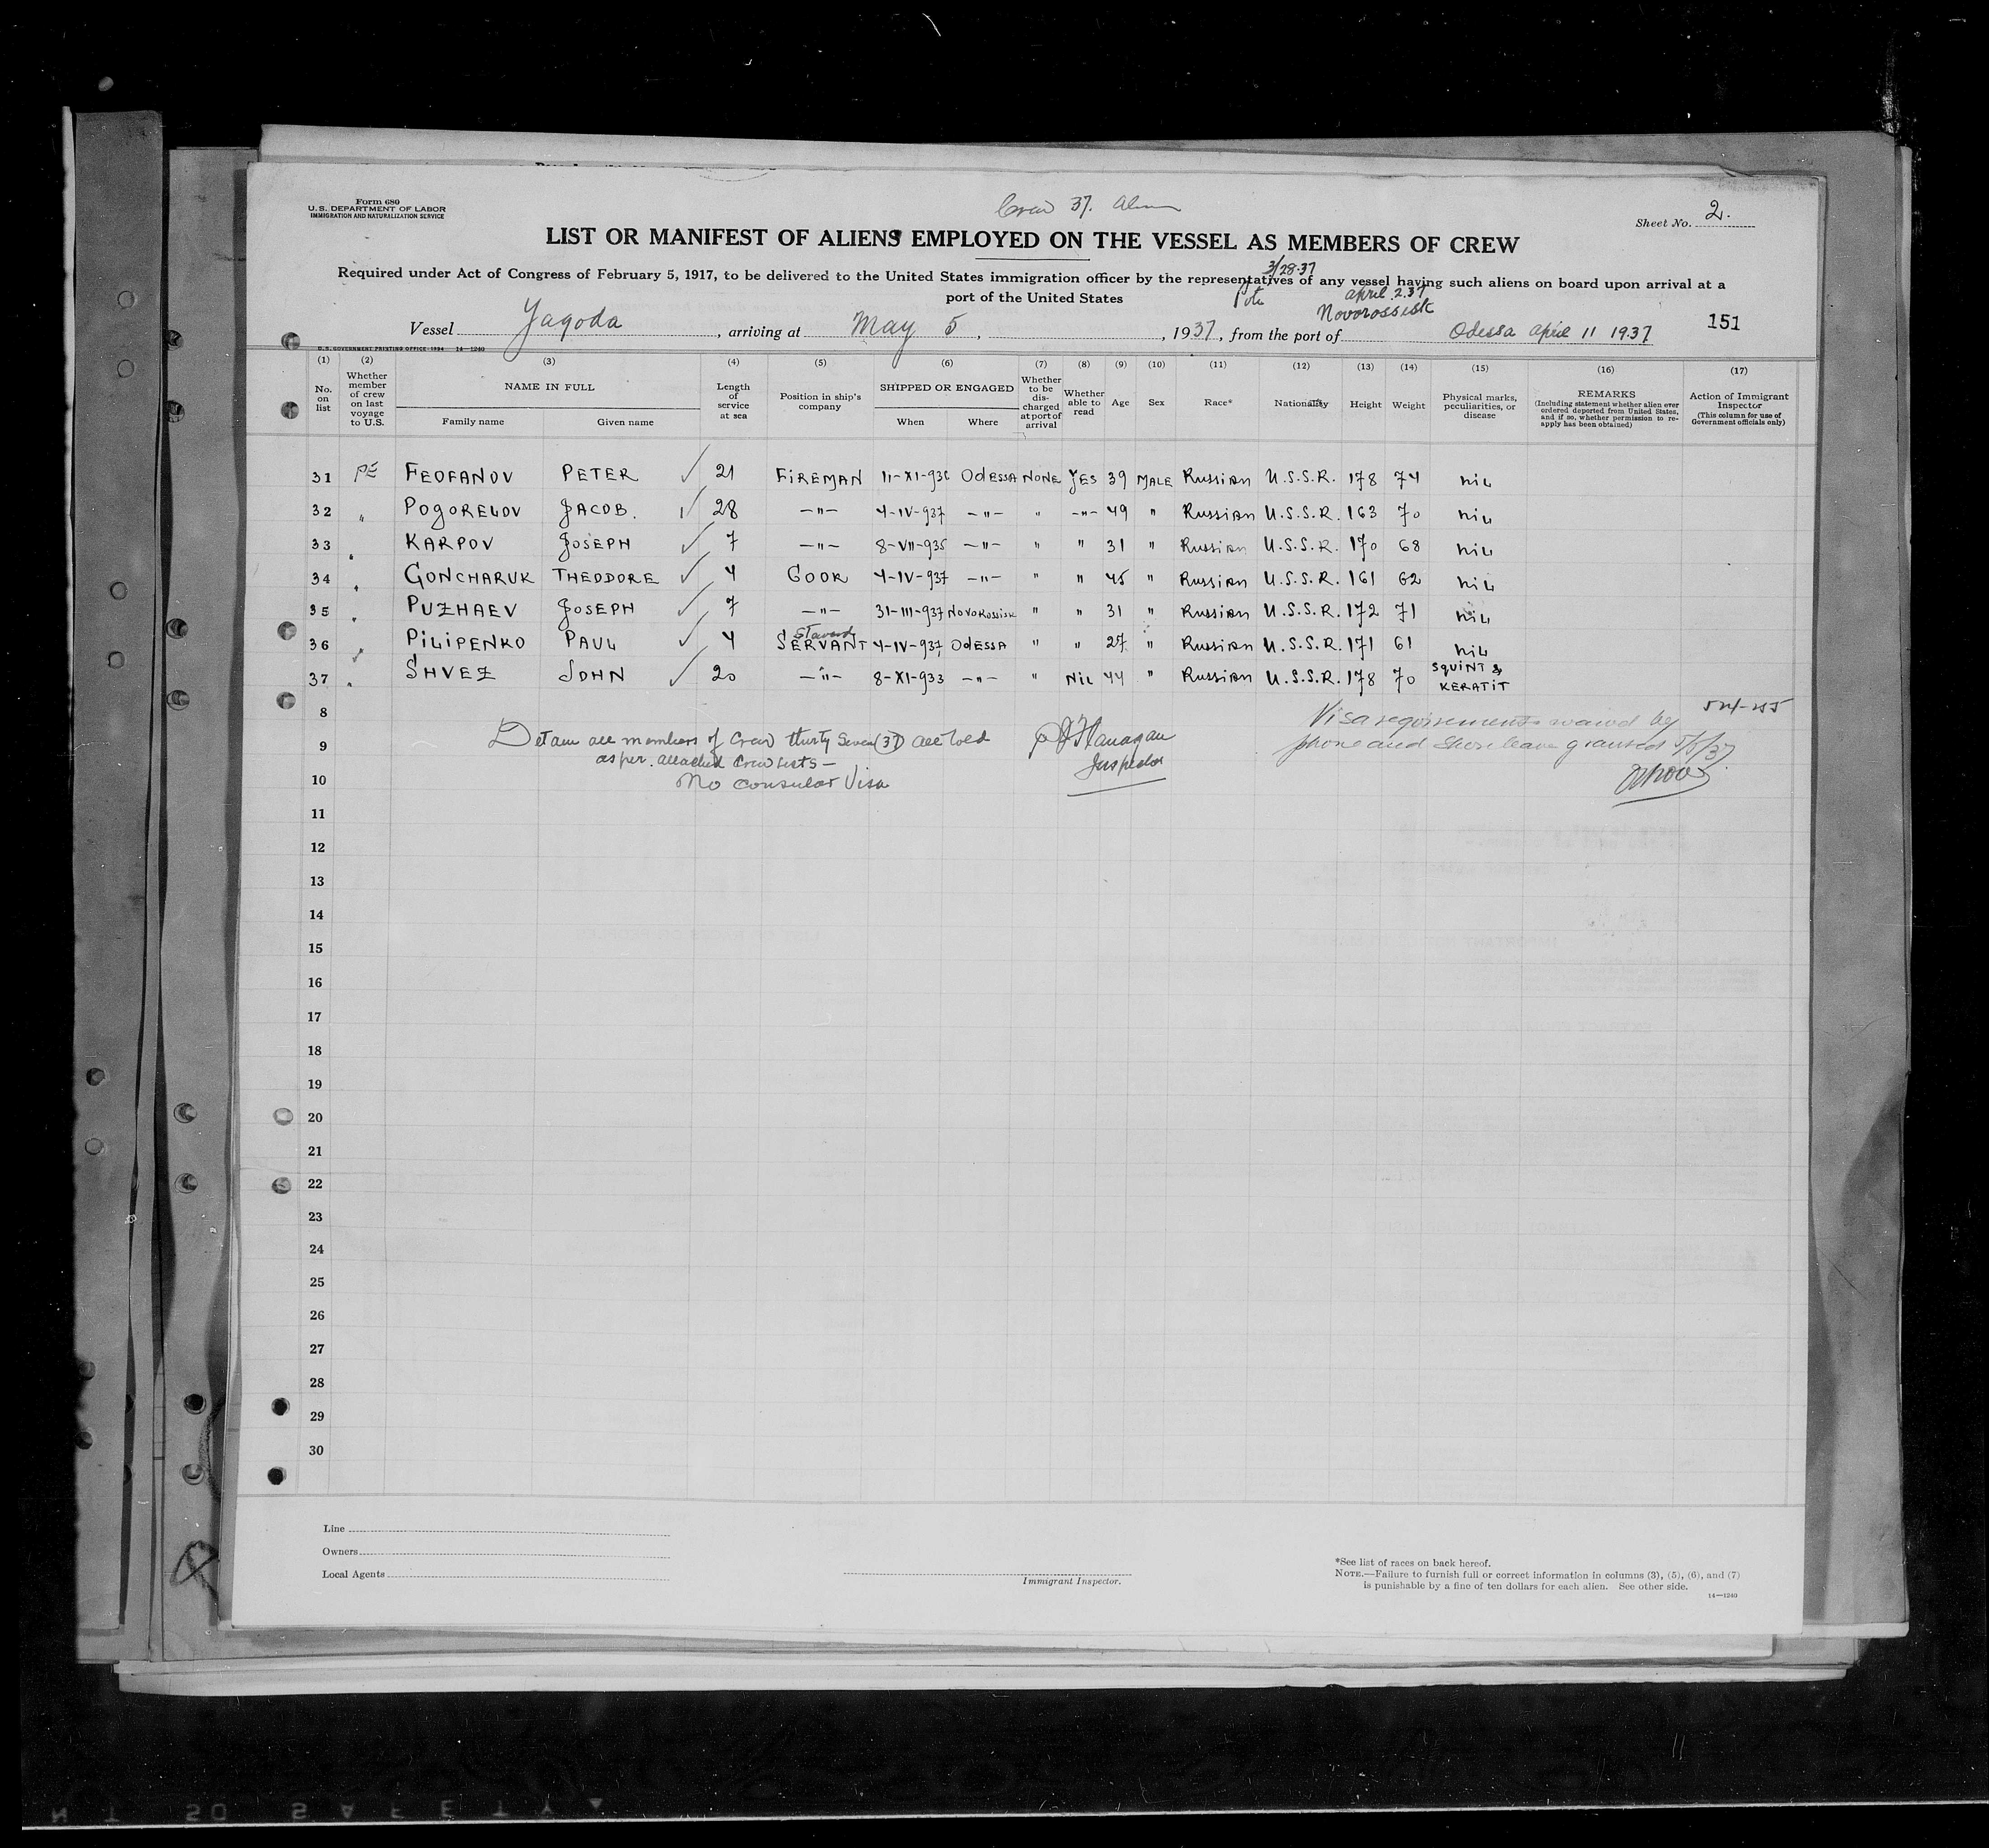 Form 680
U.S. DEPARTMENT OF LABOR
IMMIGRATION AND NATURALIZATION SERVICE
Crew 37. Alien
Sheet No. 2.
LIST OR MANIFEST OF ALIENS EMPLOYED ON THE VESSEL AS MEMBERS OF CREW
Required under Act of Congress of February 5, 1917, to be delivered to the United States immigration officer by the representatives of any vessel having such aliens on board upon arrival at a
port of the United States
3/28-37
Poti
april. 2. 37
Novorossisk
Vessel Jagoda, arriving at May 5, 1937, from the port of Odessa april 11 1937
151
U.S. GOVERNMENT PRINTING OFFICE: 1934 14-1240
(1) (2) (3) (4) (5) (6) (7) (8) (9) (10) (11) (12) (13) (14) (15) (16) (17)
No. on list
Whether member of crew on last voyage to U.S.
NAME IN FULL
Family name Given name
Length of service at sea
Position in ship's company
SHIPPED OR ENGAGED
When Where
Whether to be discharged at port of arrival
Whether able to read
Age
Sex
Race*
Nationality
Height
Weight
Physical marks, peculiarities, or disease
REMARKS
(Including statement whether alien ever ordered deported from United States, and if so, whether permission to reapply has been obtained)
Action of Immigrant Inspector
(This column for use of Government officials only)
31 PE FEOFANOV PETER ✓ 21 FIREMAN 11-XI-936 ODESSA NONE YES 39 MALE Russian U.S.S.R. 178 74 nil
32 " POGORELOV JACOB. ✓ 28 -"- 4-IV-937 -"- " -"- 49 " Russian U.S.S.R. 163 70 nil
33 " KARPOV JOSEPH ✓ 7 -"- 8-VII-935 -"- " " 31 " Russian U.S.S.R. 170 68 nil
34 " GONCHARUK THEODORE ✓ 4 COOK 4-IV-937 -"- " " 45 " Russian U.S.S.R. 161 62 nil
35 " PUZHAEV JOSEPH ✓ 7 -"- 31-III-937 NOVOROSSISK " " 31 " Russian U.S.S.R. 172 71 nil
36 " PILIPENKO PAUL ✓ 4 SERVANT 4-IV-937 ODESSA " " 27 " Russian U.S.S.R. 171 61 nil
37 " SHVEZ JOHN ✓ 20 -"- 8-XI-933 -"- " NIL 44 " Russian U.S.S.R. 178 70 SQUINT & KERATIT
8
9
10
Detain all members of Crew thirty seven (37) all told
as per. attached Crew lists —
No consular Visa
Flanagan
Inspector
Visa requirements waived by
phone and shore leave granted 5/5/37.
11
12
13
14
15
16
17
18
19
20
21
22
23
24
25
26
27
28
29
30
Line
Owners
Local Agents
Immigrant Inspector.
*See list of races on back hereof.
NOTE.—Failure to furnish full or correct information in columns (3), (5), (6), and (7)
is punishable by a fine of ten dollars for each alien. See other side.
14—1240